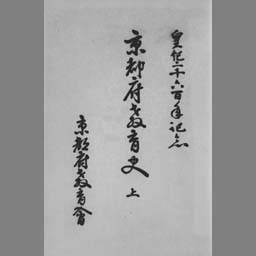 皇紀二千六百年記念
京都府教育史 上
京都府教育會